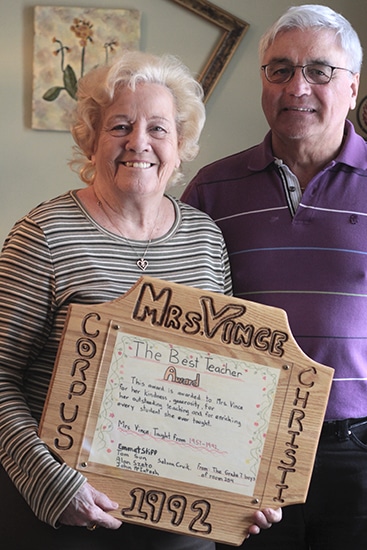 Mrs Vince
CORPUS
CHRISTI
The Best Teacher
Award
This award is awarded to Mrs Vince
for her kindness, generosity, for
her outstanding teaching and for enriching
every student she ever taught.
Mrs Vince Taught from 1957-1992
Emmet
Tom Gun
Alan Szato
John McIntosh
Salom Cruit
From The Grade 7 boys
of room 209.
1992